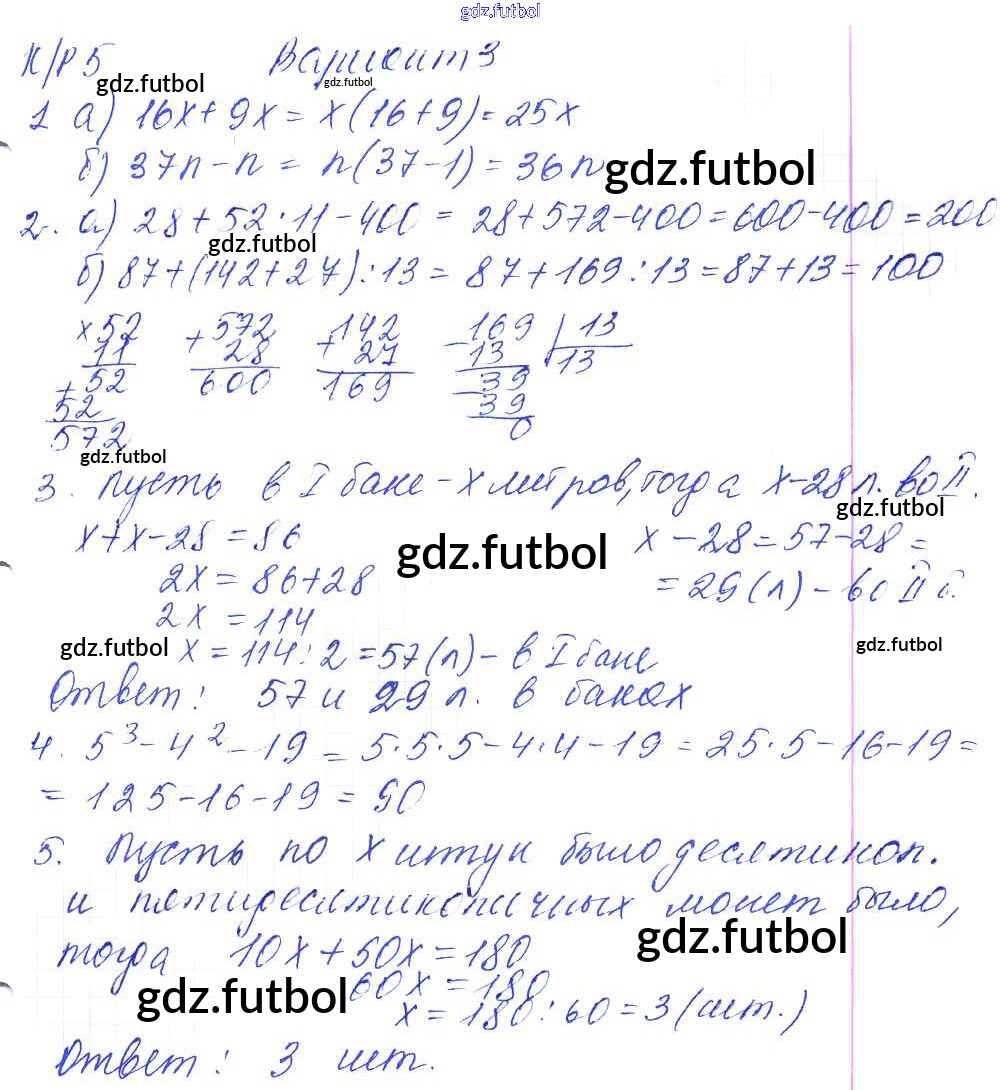 gdz.futbol
К/Р 5 Вариант 3
gdz.futbol gdz.futbol
1 а) 16x + 9x = x(16+9) = 25x
б) 37n - n = n(37-1) = 36n
gdz.futbol
2. а) 28 + 52 · 11 - 400 = 28 + 572 - 400 = 600 - 400 = 200
gdz.futbol
б) 87 + (142 + 27) : 13 = 87 + 169 : 13 = 87 + 13 = 100
× 52 + 572 + 142 - 169 | 13
11 28 27 13 13
+ 52 600 169 - 39
52 39
572 0
gdz.futbol
3. Пусть в I баке - x литров, тогда x-28 л. во II.
gdz.futbol
x + x - 28 = 86 x - 28 = 57 - 28 =
gdz.futbol
2x = 86 + 28 = 29 (л) - во II б.
2x = 114
gdz.futbol gdz.futbol
x = 114 : 2 = 57 (л) - в I баке
Ответ: 57 и 29 л. в баках
4. 5³ - 4² - 19 = 5·5·5 - 4·4 - 19 = 25·5 - 16 - 19 =
= 125 - 16 - 19 = 90
5. Пусть по x штук было десятикоп.
и пятидесятикопеичных монет было,
gdz.futbol
тогда 10x + 50x = 180
60x = 180
gdz.futbol
x = 180 : 60 = 3 (шт.)
Ответ: 3 шт.